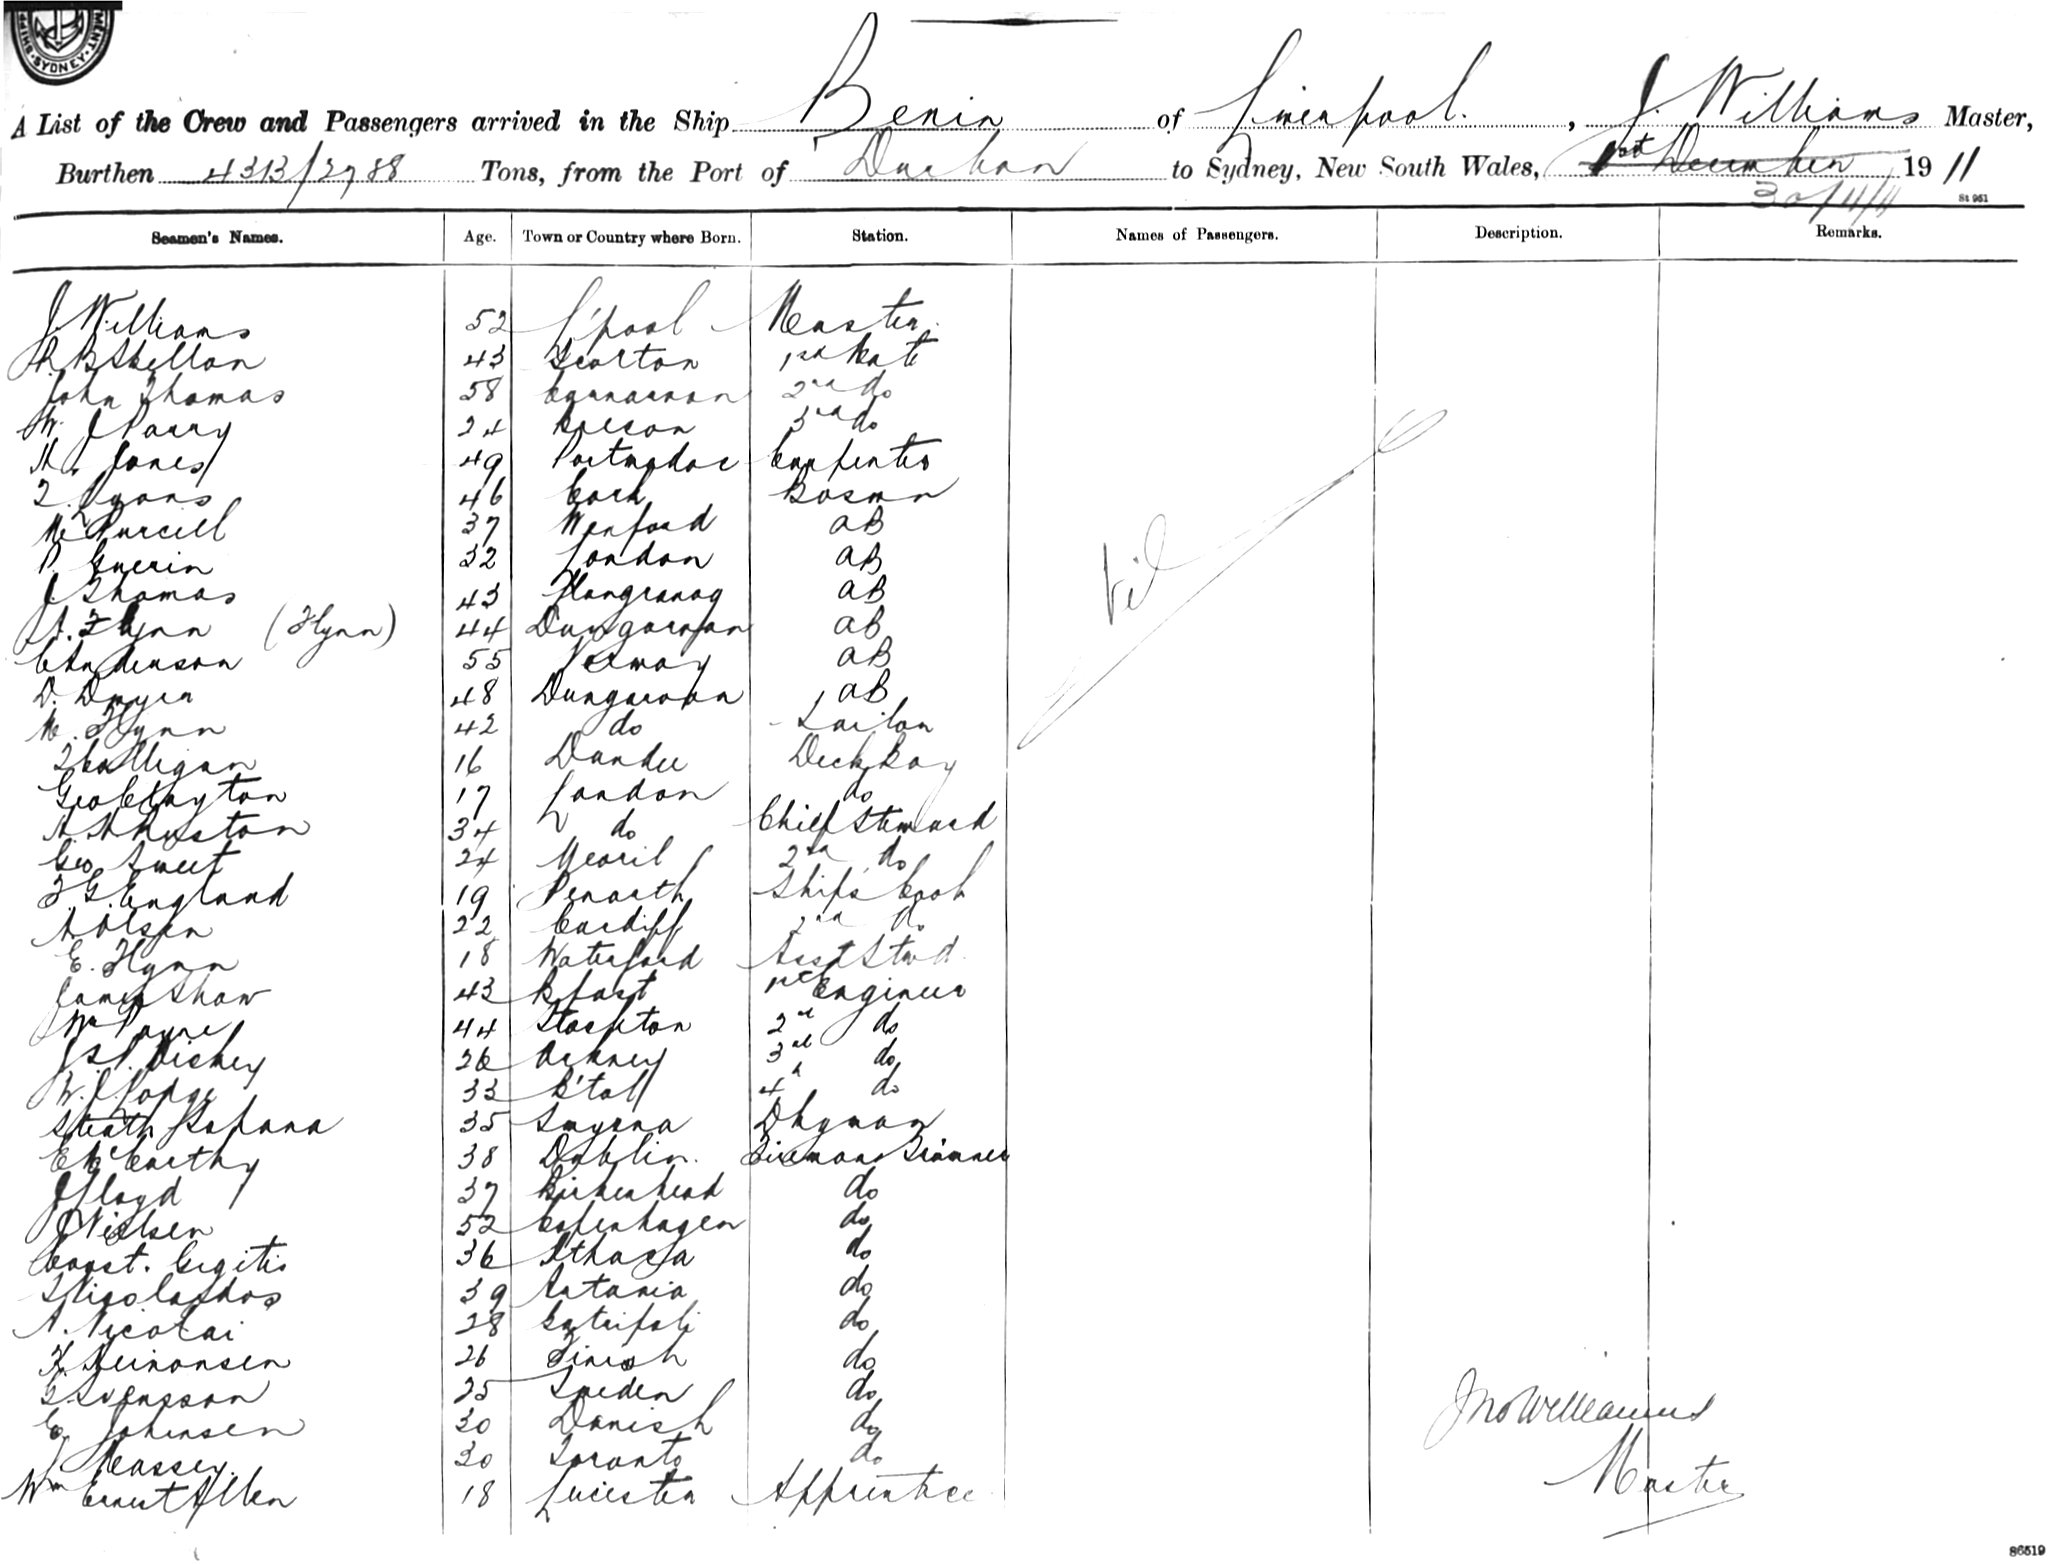 SYDNEY
A List of the Crew and Passengers arrived in the Ship Benin of Liverpool. , J. Williams Master,
Burthen 4313/2788 Tons, from the Port of Durban to Sydney, New South Wales, 1st December 1911
30/11/11
St 951
Seamen's Names. Age. Town or Country where Born. Station. Names of Passengers. Description. Remarks.
J. Williams 52 L'pool Master
R. B Skellon 43 Scorton 1st Mate
John Thomas 58 Carnarvon 2nd do
W. J Parry 24 3rd do
H. Jones 49 Portmadoc Carpenter
T. Lyons 46 Cork Bosman
M Purcell 37 Wexford AB
P. Guerin 32 London AB
J. Thomas 43 Llangranog AB
Flynn (Flynn) 44 Dungarvan AB
C Andersson 55 Norway AB
D. Dwyer 48 Dungarvan AB
M. Flynn 42 do Sailor
T Halligan 16 Dundee Deck Boy
Geo Clayton 17 London do
34 do Chief Steward
Geo Sweet 24 2nd do
F. G. England 19 Penarth Ships Cook
A Olsen 22 Cardiff 2nd do
E. Flynn 18 Waterford Asst Stwd.
James Shaw 43 B'fast 1st Engineer
Wm Payne 44 Stockton 2nd do
26 Orkney 3rd do
W. J. 33 B'tol 4th do
35 Smyrna Dkyman
E McCarthy 38 Dublin. Fireman & Trimmer
J Lloyd 37 Birkenhead do
J Nielsen 52 Copenhagen do
Const. Gigitis 36 Ithaca do
39 do
A. Nicolai 28 do
K. Heinonsen 26 Finish do
Svensson 25 Sweden do
C. Johansen 30 Danish do
J Massey. 30 Toronto do
Wm Ernest Allen 18 Leicester Apprentice
Nil
Jno Williams
Master
86519